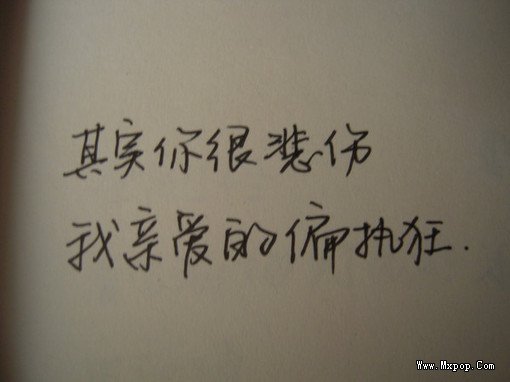 其实你很悲伤
我亲爱的偏执狂.
Www.Mxpop.Com